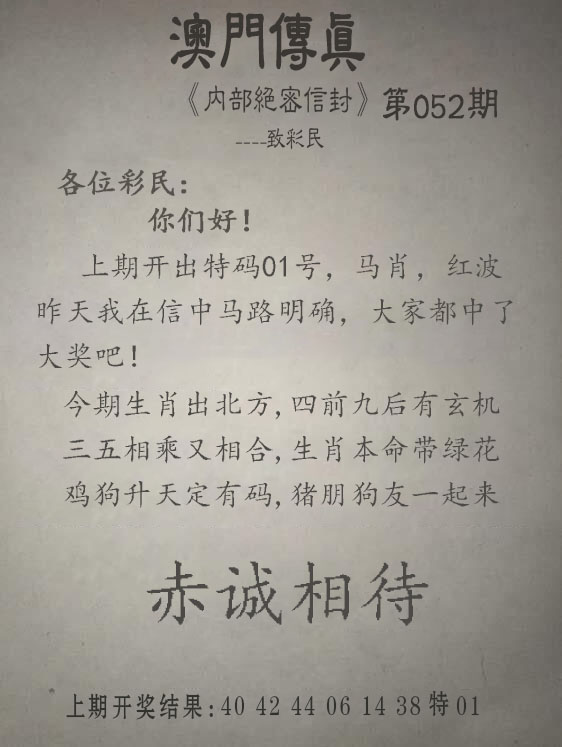 澳門傳眞
《内部絕密信封》第052期
----致彩民
各位彩民:
你们好!
上期开出特码01号, 马肖, 红波
昨天我在信中马路明确, 大家都中了
大奖吧!
今期生肖出北方, 四前九后有玄机
三五相乘又相合, 生肖本命带绿花
鸡狗升天定有码, 猪朋狗友一起来
赤诚相待
上期开奖结果: 40 42 44 06 14 38 特 01